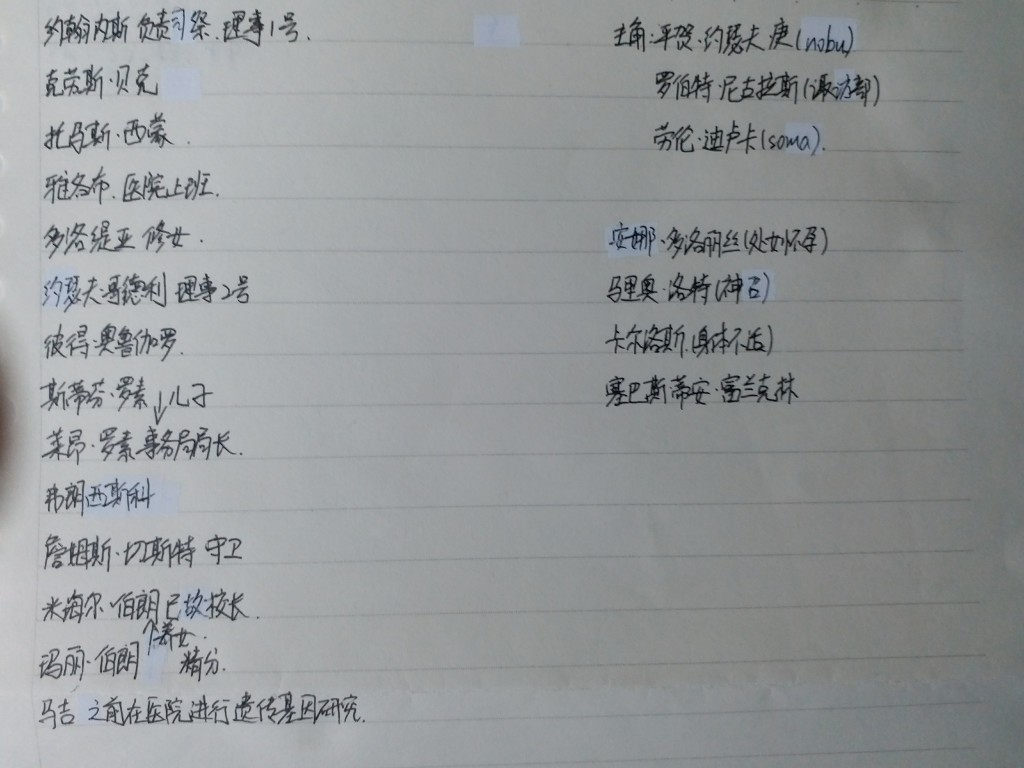 约翰内斯 负责司祭.理事1号.
克劳斯·贝克
托马斯·西蒙.
雅各布.医院上班.
多洛缇亚 修女.
约瑟夫·哥德利 理事2号
彼得·奥鲁伽罗.
斯蒂芬·罗素↓儿子
莱昂·罗素 事务局局长.
弗朗西斯科
詹姆斯·切斯特 守卫
米海尔·伯朗 已故校长.
↑养女.
玛丽·伯朗 精分.
马吉 之前在医院进行遗传基因研究.
主角·平贺·约瑟夫 庚(nobu)
罗伯特·尼古拉斯(诹访部)
劳伦·迪卢卡(soma).
安娜·多洛丽丝(处女怀孕)
马里奥·洛特(神召)
卡尔洛斯.身体不适)
塞巴斯蒂安·富兰克林